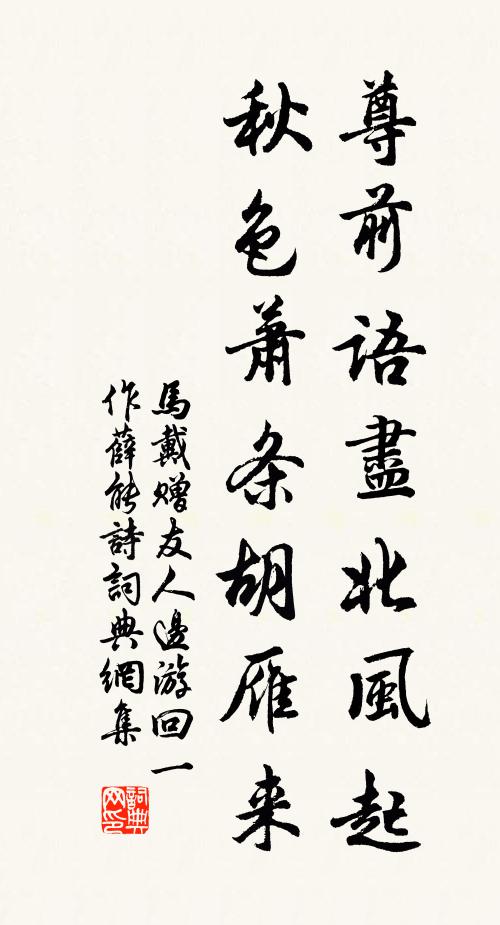 尊前語盡北風起
秋色蕭条胡雁来
馬戴赠友人邊游回一
作薛能詩詞典網集
詞典
网印